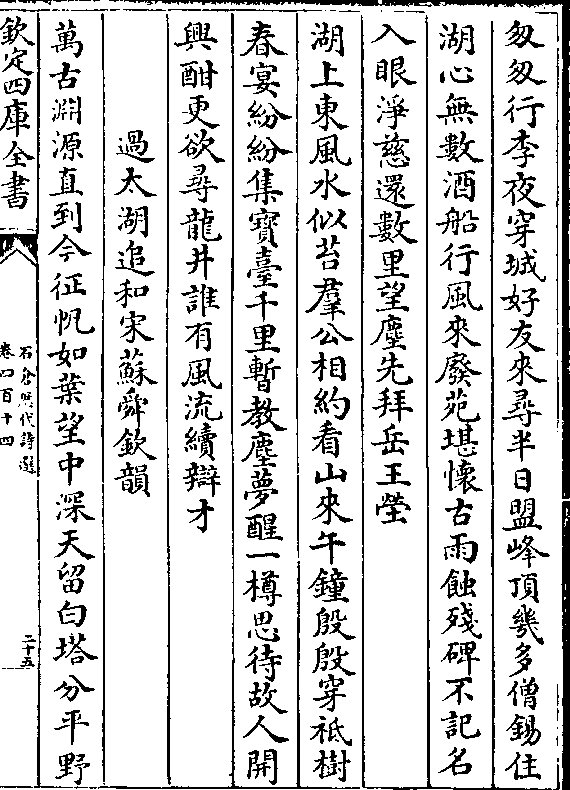 匆匆行李夜穿城好友來尋半日盟峰頂幾多僧錫住
湖心無數酒船行風來廢苑堪懷古雨蝕殘碑不記名
入眼淨慈還數里望塵先拜岳王塋
湖上東風水似苔羣公相約看山來午鐘殷殷穿祗樹
春宴紛紛集寶臺千里暫教塵夢醒一樽思待故人開
興酣更欲尋龍井誰有風流續辯才
過太湖追和宋蘇舜欽韻
萬古淵源直到今征帆如葉望中深天留白塔分平野
欽定四庫全書
石倉歷代詩選
卷四百十四
二十五